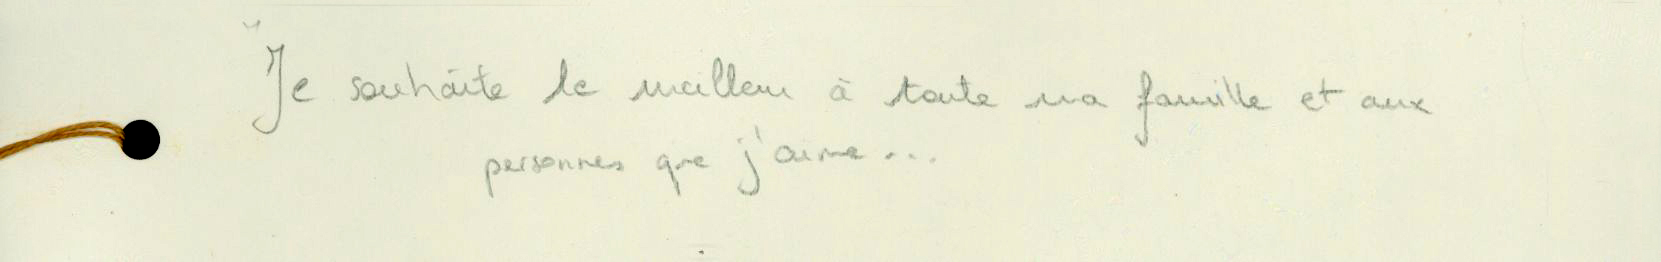 Je souhaite le meilleur à toute ma famille et aux
personnes que j'aime...